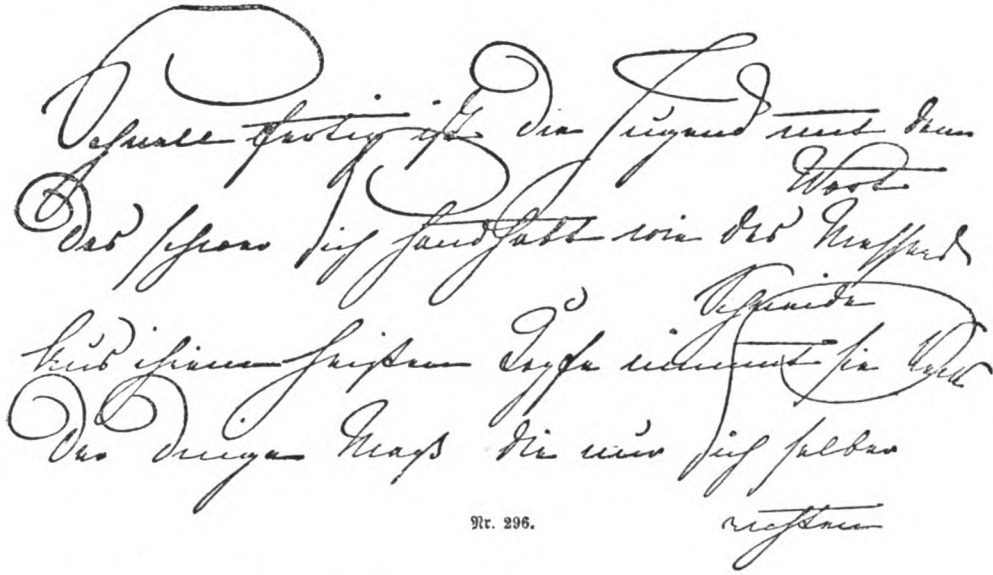 Schnell fertig ist die Jugend mit dem
Wort
das schwer sich handhabt wie des Messers
Schneide
Aus ihrem heißen Kopfe nimmt sie keck
Der Dinge Maß die nur sich selber
richten
Nr. 296.